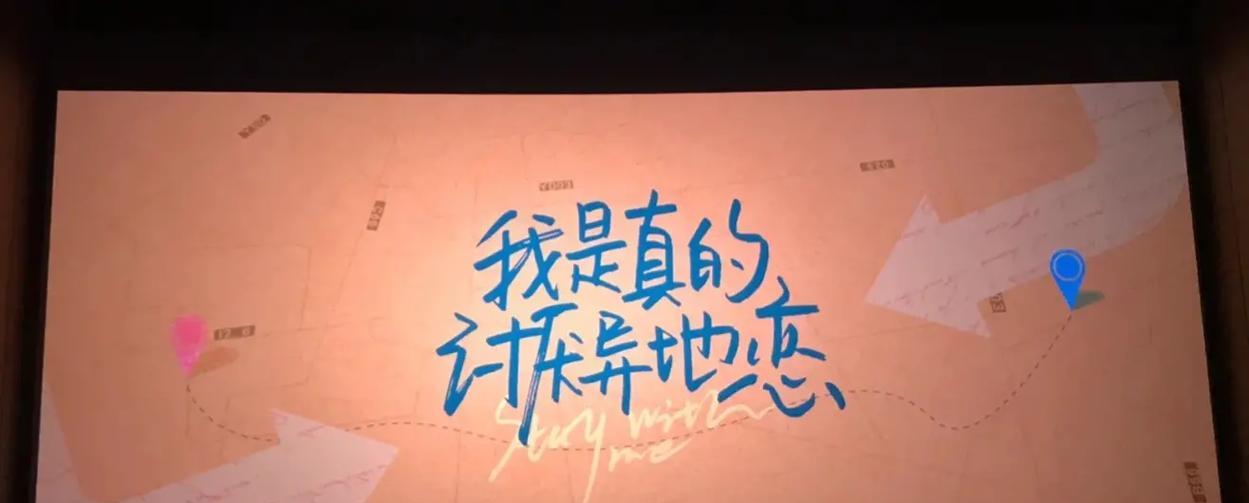 我是真的
讨厌异地恋
Stay with
me